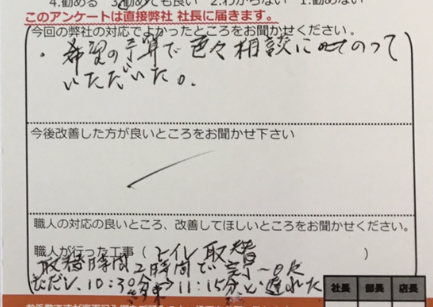 4.勧める 3.勧めても良い 2.わからない 1.勧めない
このアンケートは直接弊社 社長に届きます。
今回の弊社の対応でよかったところをお聞かせください。
・希望の予算で色々相談にのって
いただいた。
今後改善した方が良いところをお聞かせ下さい
職人の対応の良いところ、改善してほしいところをお聞かせください。
職人が行った工事（トイレ取替）
取替時間2時間で
ただし、10:30 11:15分と遅れた
社長 部長 店長